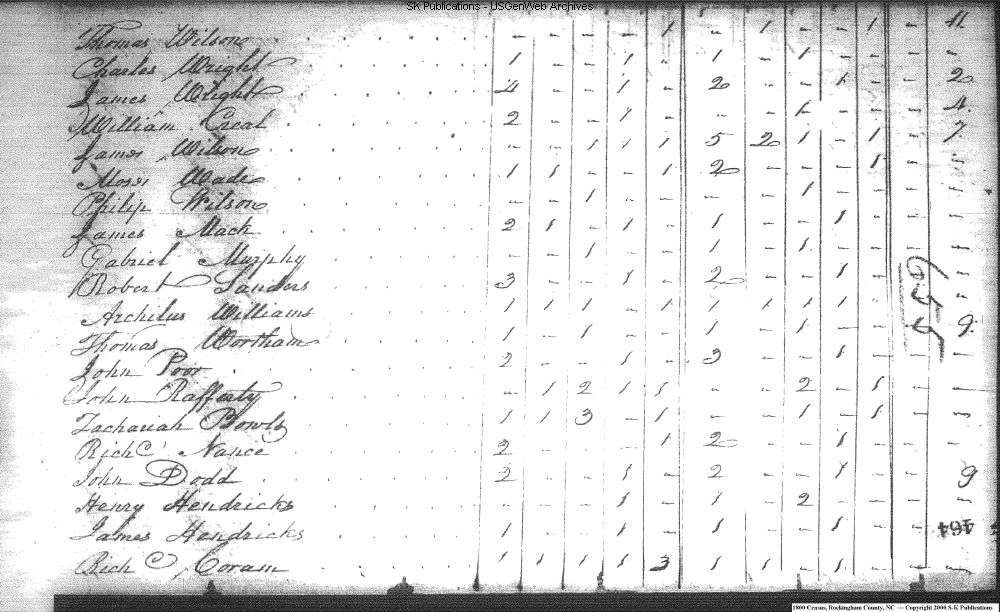 SK Publications - USGenWeb Archives
Thomas Wilson - - - - 1 - 1 - 1 - 11
Charles Wright 1 - - 1 - 1 - 1 - - -
James Wright 4 - - 1 - 2 - - 1 - - 2
William Creal 2 - - 1 - - - 1 - - - 4
James Wilson - - 1 1 1 5 2 1 - 1 - 7
Moses Wade 1 1 - - 1 2 - - - 1 - -
Philip Wilson - - 1 - - - - 1 - - - -
James Mack 2 1 - 1 - 1 - - 1 - - -
Gabriel Murphy - - 1 - - 1 - 1 - - - -
Robert Sanders 3 - - 1 - 2 - - 1 - - -
Archilus Williams 1 1 1 1 1 1 1 1 1 1 - 9
Thomas Wortham 1 - 1 - - 1 - 1 - - - -
John Poor 2 - - 1 - 3 - - 1 - - -
John Rafferty - 1 2 1 1 - - 2 - 1 - -
Zachariah Bowls 1 1 3 - 1 - - 1 - 1 - -
Richd Nance 2 - - - 1 2 - - 1 - - -
John Dodd 2 - - 1 - 2 - - 1 - - 9
Henry Hendricks - - - 1 - 1 - 2 - - - -
James Hendricks 1 - - 1 - 1 - - 1 - - -
Richd Coram 1 1 1 1 3 1 1 - 1 - - -
655
464
1800 Census, Rockingham County, NC — Copyright 2000 S-K Publications